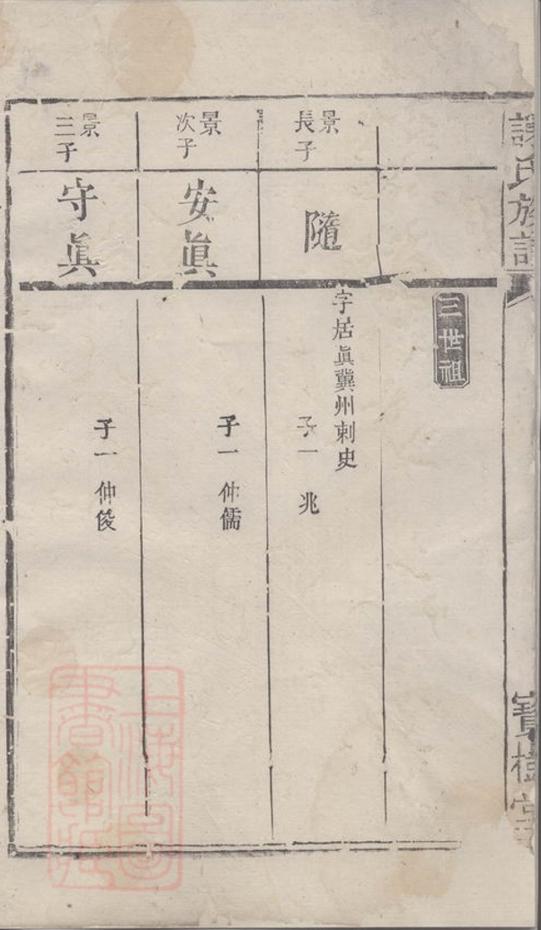 謝氏族譜
寶樹堂
三世祖
景長子
隨
字居眞冀州刺史
子一 兆
景次子
安眞
子一 仲儒
景三子
守眞
子一 仲俊
上海圖書館藏